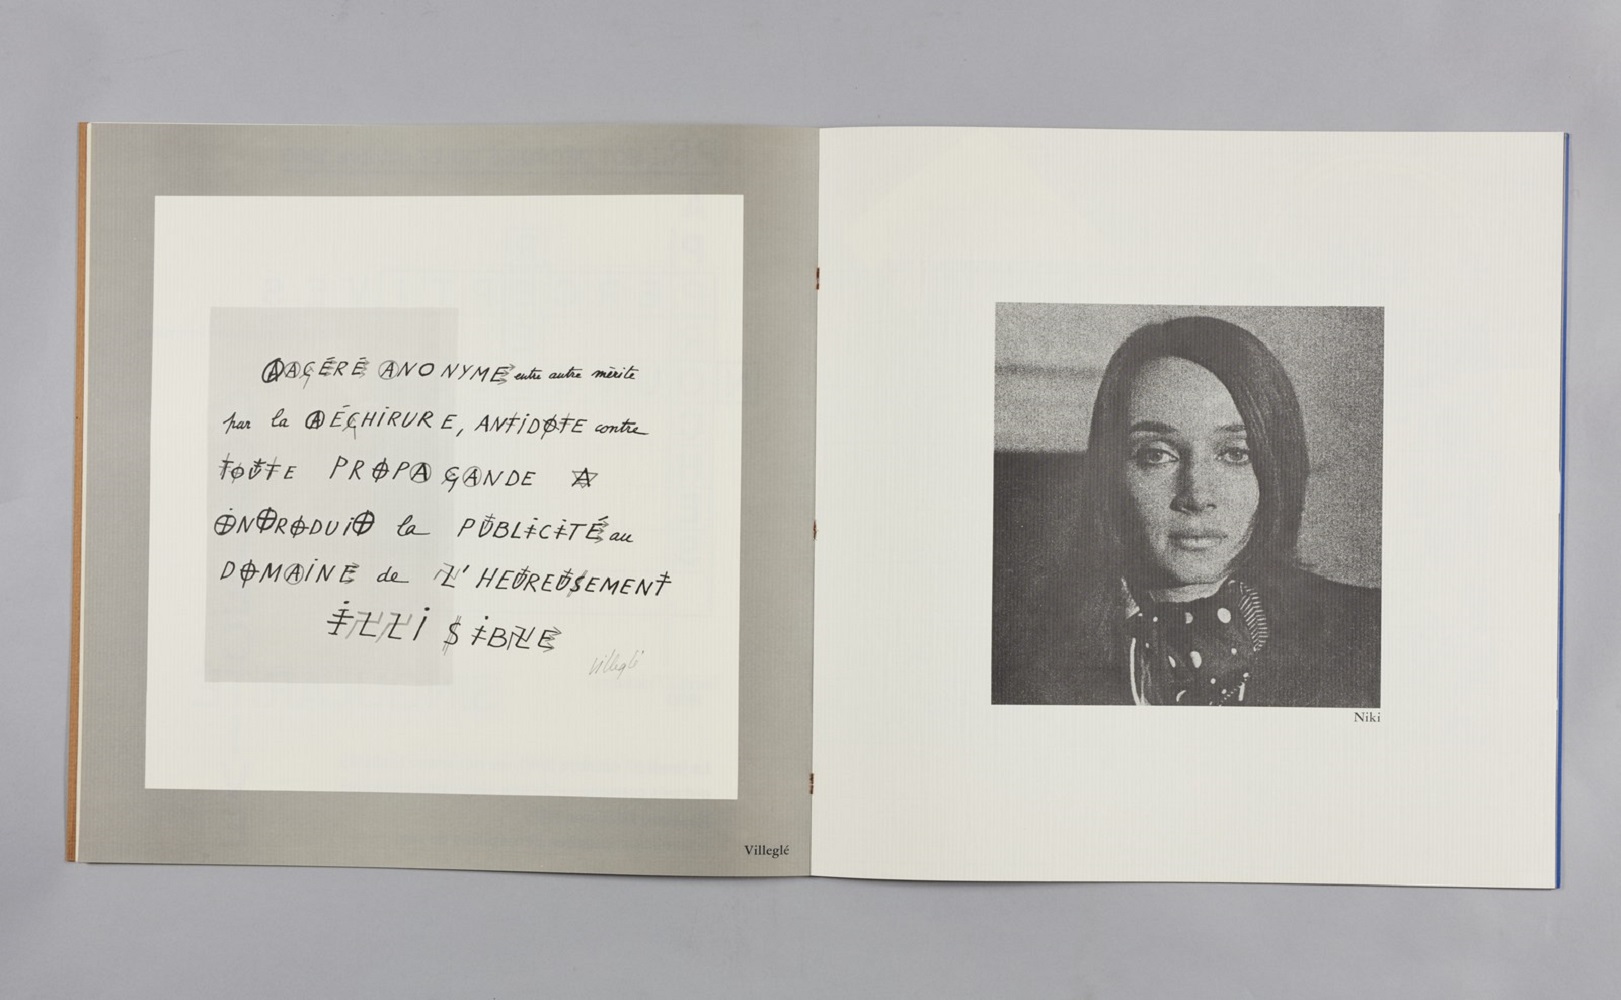 LACÉRÉ ANONYME entre autre mérite
par la DÉCHIRURE, ANTIDOTE contre
TOUTE PROPAGANDE A
INTRODUIT la PUBLICITÉ au
DOMAINE de L'HEUREUSEMENT
ILLISIBLE
Villeglé
Villeglé
Niki